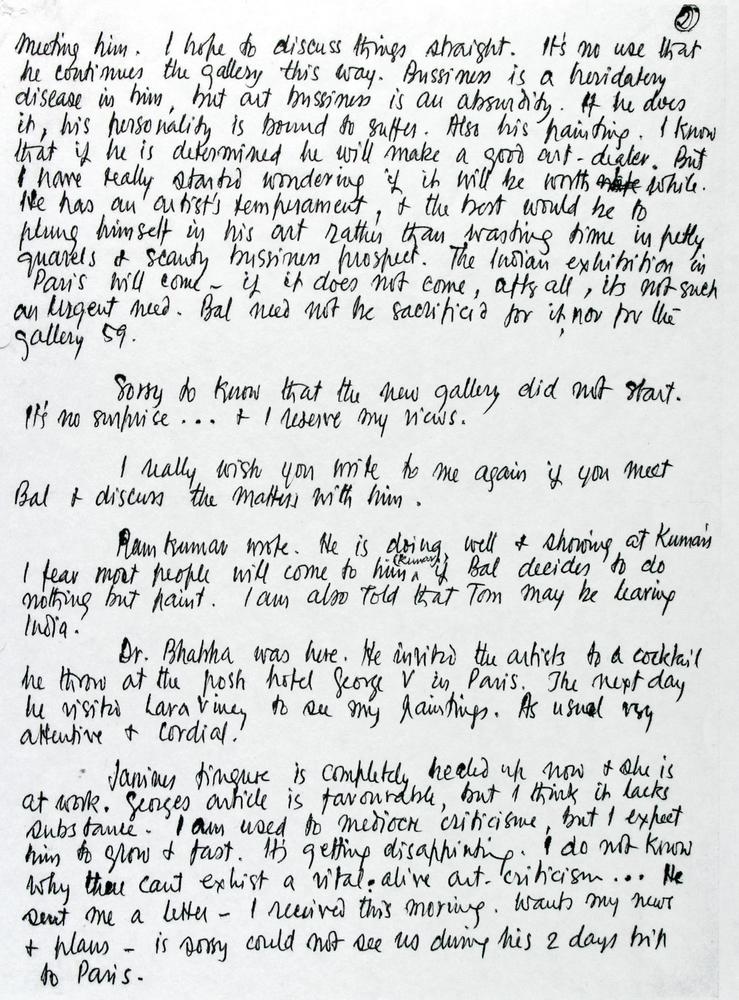 2
meeting him. I hope to discuss things straight. It's no use that
he continues the gallery this way. Bussiness is a heridatery
disease in him, but art bussiness is an absurdity. If he does
it, his personality is bound to suffer. Also his painting. I know
that if he is determined he will make a good art-dealer. But
I have really started wondering if it will be worth while.
He has an artist's temperament, & the best would be to
plung himself in his art rather than wasting time in petty
quarels & scanty bussiness prospect. The Indian exhibition in
Paris will come – if it does not come, after all, its not such
an urgent need. Bal need not be sacrificed for it, nor for the
gallery 59.
Sorry to know that the new gallery did not start.
It's no surprice ... & I reserve my views.
I really wish you write to me again if you meet
Bal & discuss the matters with him.
Ram Kumar wrote. He is doing well & showing at Kumar's
I fear most people will come to him (Kumar) if Bal decides to do
nothing but paint. I am also told that Tom may be leaving
India.
Dr. Bhabha was here. He invited the artists to a cocktail
he throw at the posh hotel George V in Paris. The next day
he visited Lara Vincy to see my paintings. As usual very
attentive & cordial.
Janines fingure is completely healed up now & she is
at work. Georges article is favourable, but I think it lacks
substance. I am used to mediocre criticisme, but I expect
him to grow & fast. It's getting disappointing. I do not know
why there cant exhist a vital alive art-criticism ... He
sent me a letter – I received this morning. Wants my news
& plans – is sorry could not see us during his 2 days trip
to Paris.